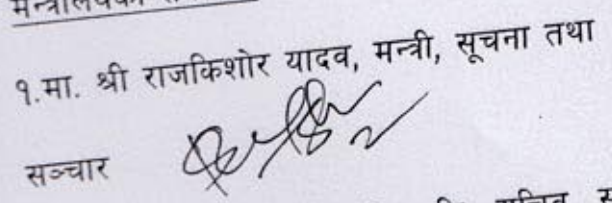 १.मा. श्री राजकिशोर यादव, मन्त्री, सूचना तथा
सञ्चार